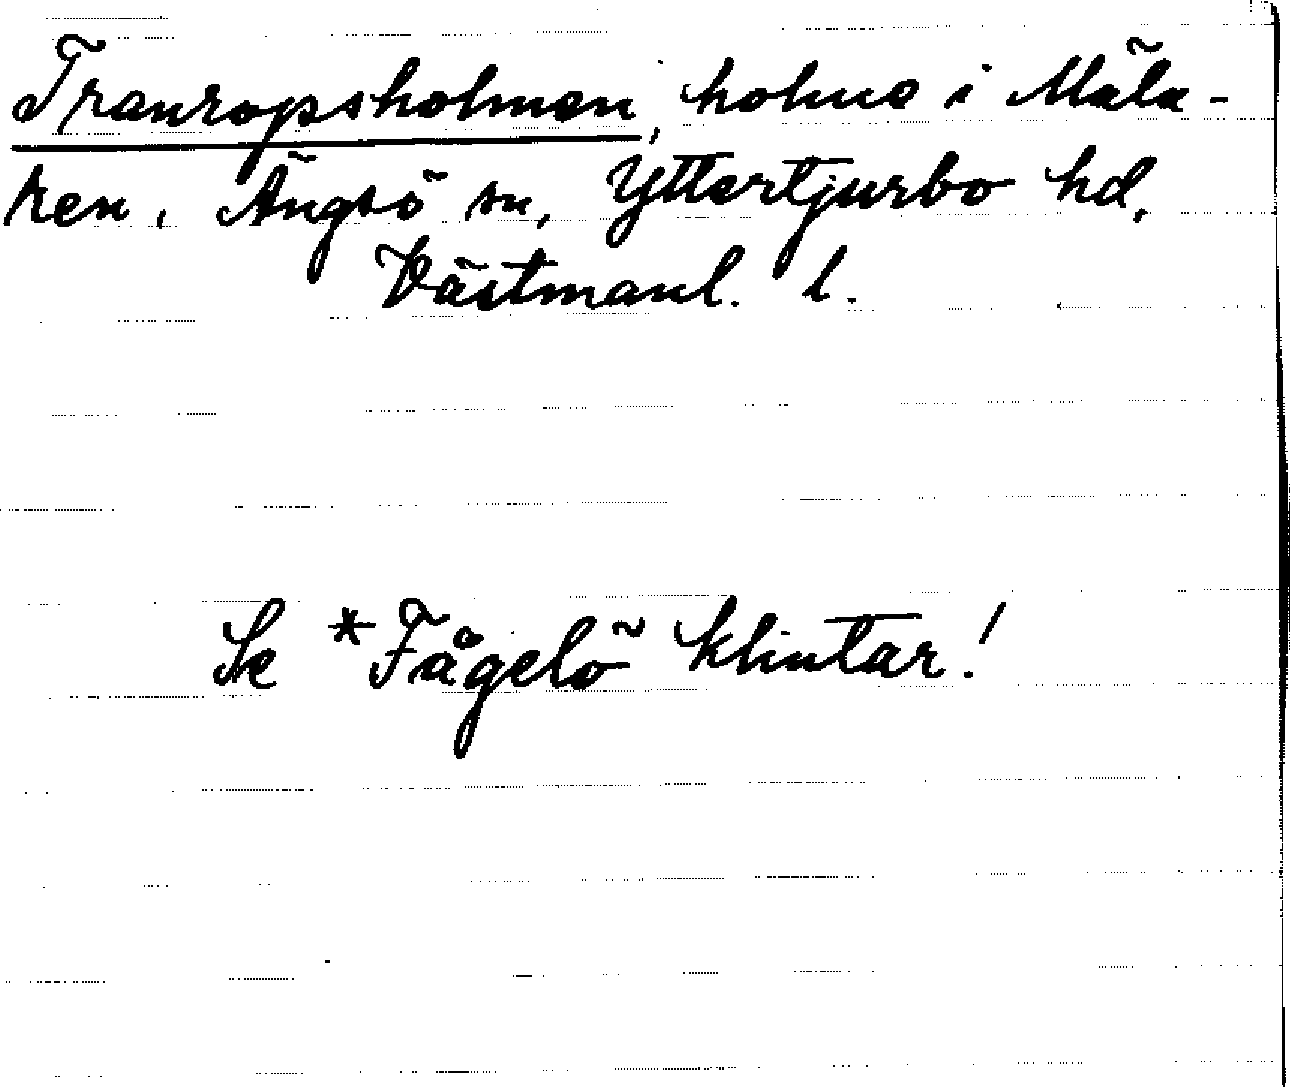 Tranropsholmen, holme i Mäla-
ren, Ängsö sn, Yttertjurbo hd,
Västmanl. l.
Se *Fågelö klintar!